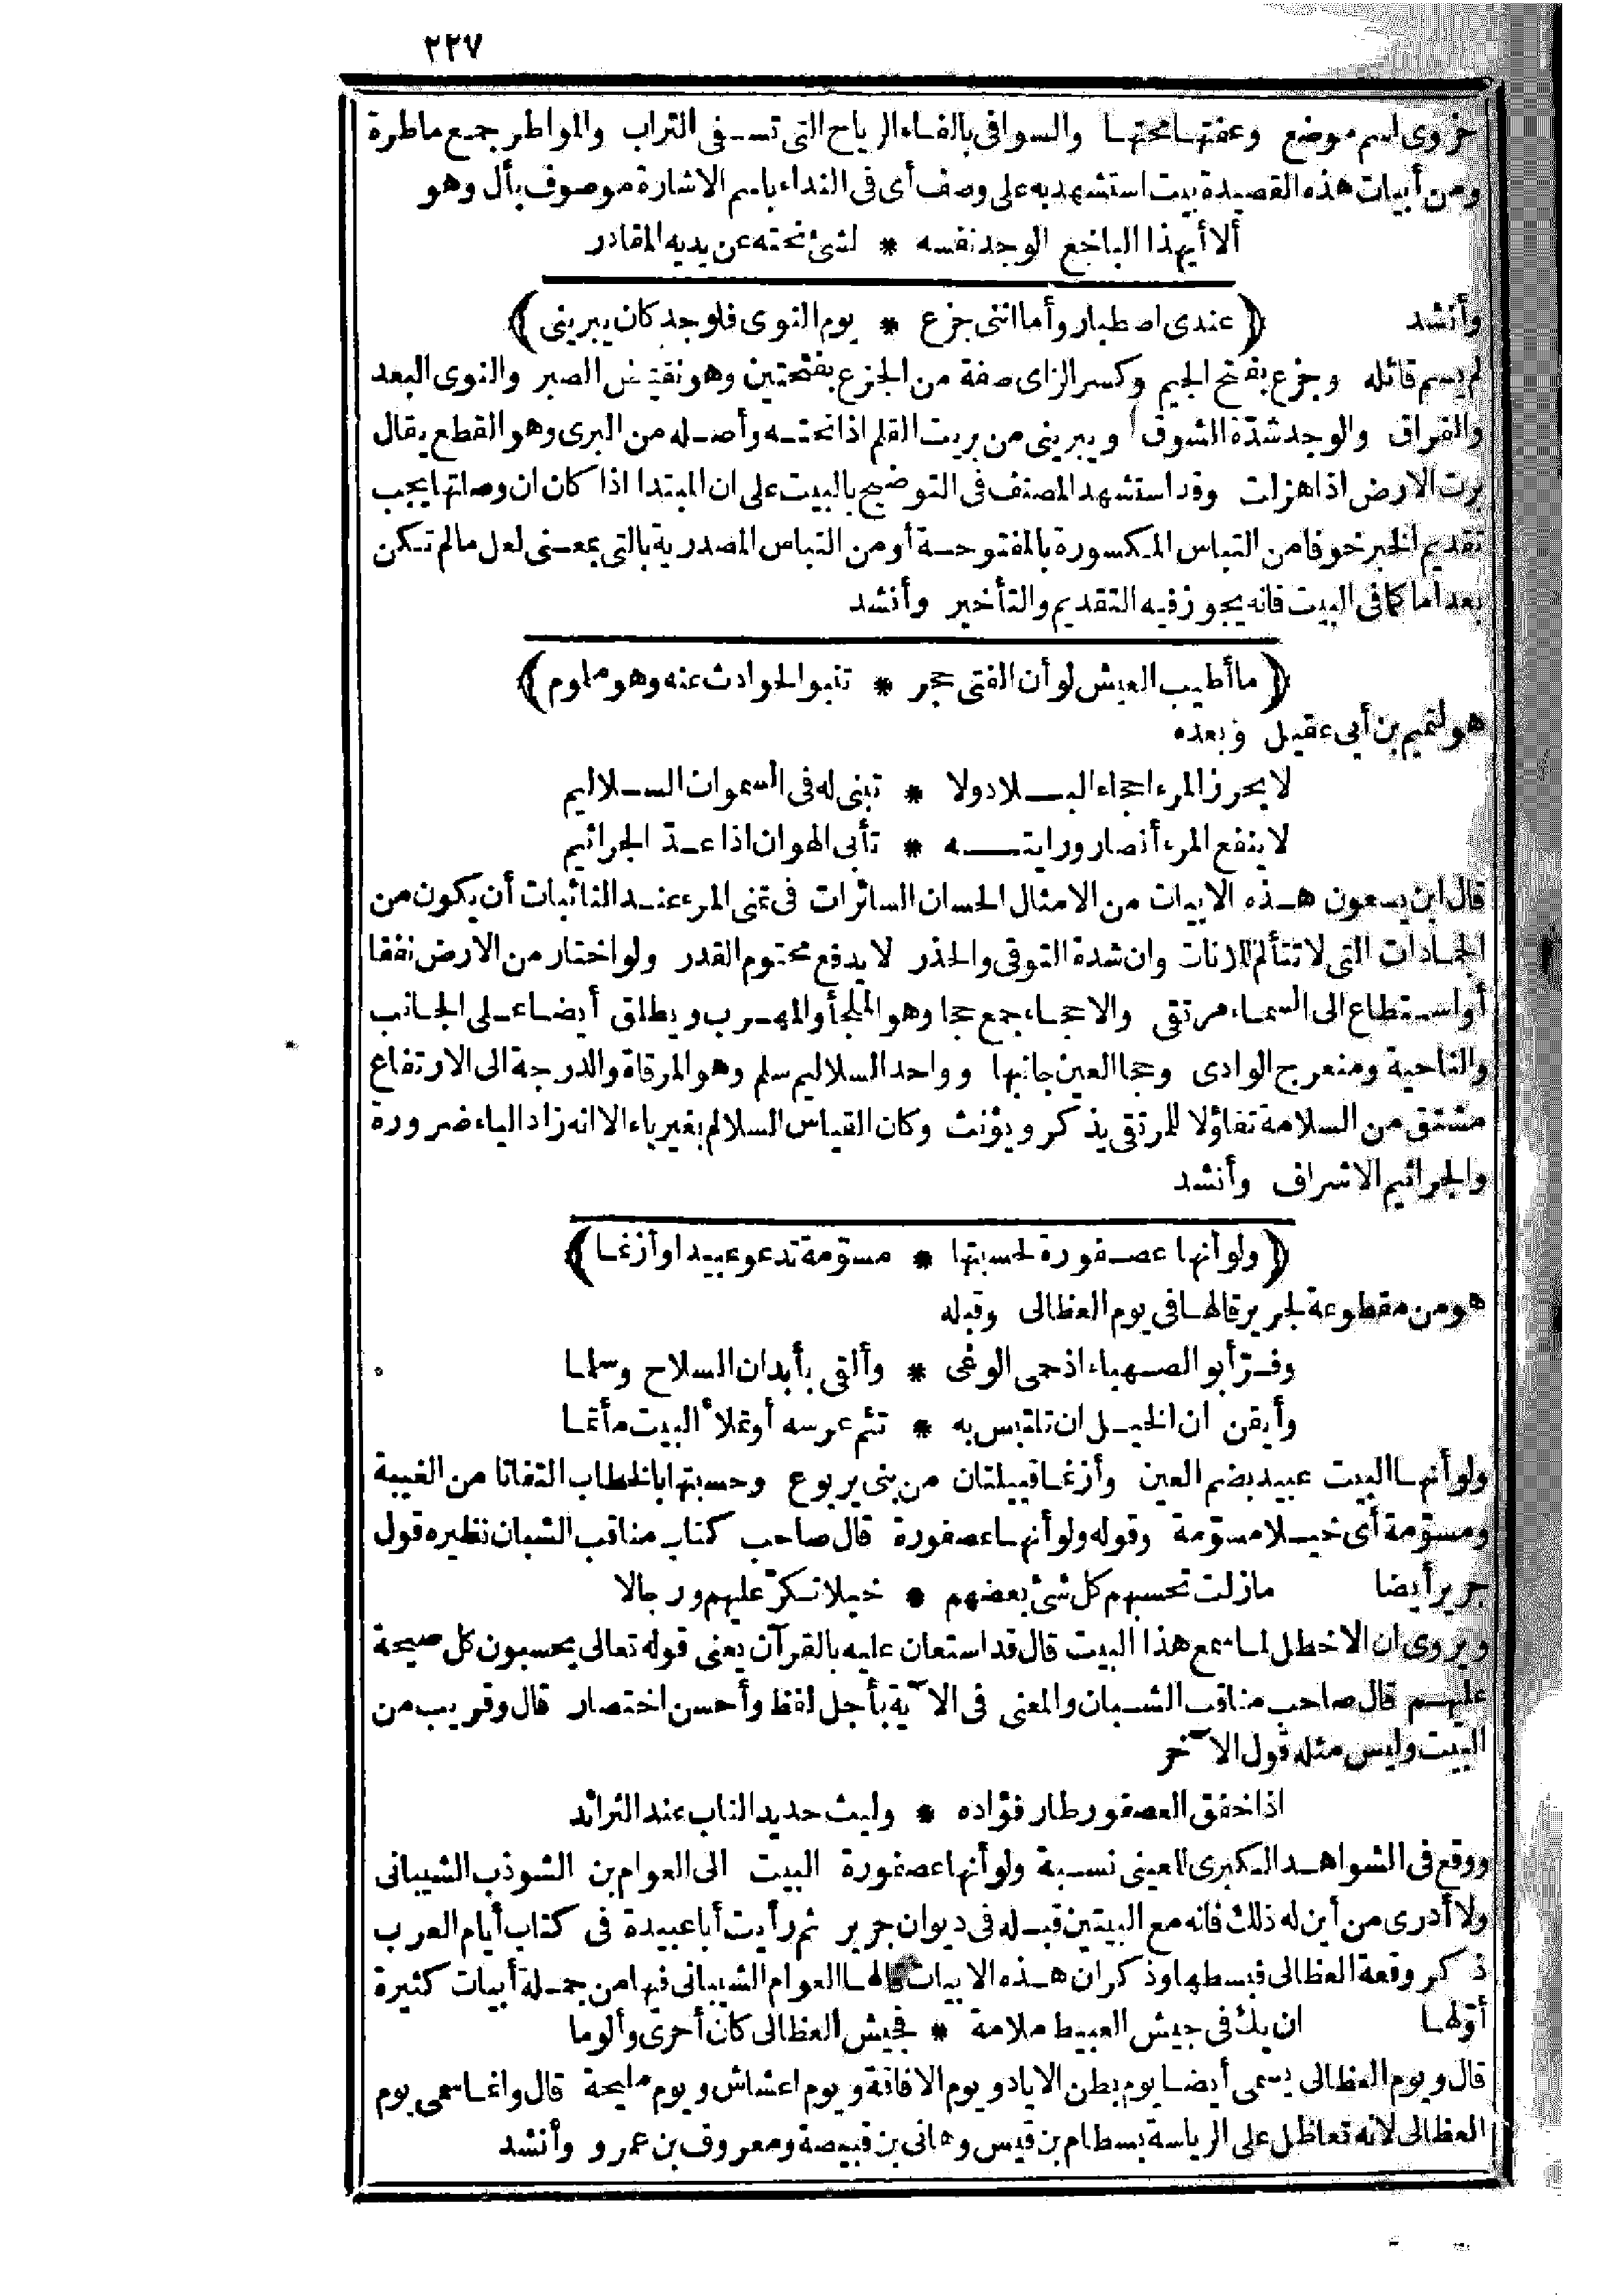 ٢٢٧
حزوى اسم موضع وعفتها محتها والسوافى بالفاء الرياح التى تسفى التراب والمواطر جمع ماطرة
ومن أبيات هذه القصيدة بيت استشهد به على وصف أى فى النداء باسم الاشارة موصوف بأل وهو
ألا أيهذا الباخع الوجد نفسه * لشئ نحته عن يديه المقادر
وأنشد ﴿عندى اصطبار وأما اننى جزع * يوم النوى فلوجد كان يبرينى﴾
لم يسم قائله وجزع بفتح الجيم وكسر الزاى صفة من الجزع بفتحتين وهو نقيض الصبر والنوى البعد
والفراق والوجد شدّة الشوق ويبرينى من بريت القلم اذا نحته وأصله من البرى وهو القطع يقال
برت الارض اذا هزلت وقد استشهد المصنف فى التوضيح بالبيت على ان المبتدا اذا كان ان وصلتها يجب
تقديم الخبر خوفا من التباس المكسورة بالمفتوحة أو من التباس المصدرية بالتى بمعنى لعل مالم تكن
بعد أما كما فى البيت فانه يجوز فيه التقديم والتأخير وأنشد
﴿ما أطيب العيش لو أن الفتى حجر * تنبو الحوادث عنه وهو ملموم﴾
هو لتميم بن أبى عقيل وبعده
لا يحرز المرء احجاء البلاد ولا * تبنى له فى السموات السلاليم
لا ينفع المرء أنصار ورايته * تأبى الهوان اذا عدّ الجراثيم
قال ابن يسعون هذه الابيات من الامثال الحسان السائرات فى تمنى المرء عند النائبات أن يكون من
الجمادات التى لا تتألم للازنات وان شدة التوقى والحذر لا يدفع محتوم القدر ولو اختار من الارض نفقا
أو استطاع الى السماء مرتقى والاحجاء جمع حجا وهو الملجأ والمهرب ويطلق أيضا على الجانب
والناحية ومنعرج الوادى وحجا العين جانبها وواحد السلاليم سلم وهو المرقاة والدرجة الى الارتفاع
مشتق من السلامة تفاؤلا للمرتقى يذكر ويؤنث وكان القياس السلالم بغير ياء الا انه زاد الياء ضرورة
والجراثيم الاشراف وأنشد
﴿ولو أنها عصفورة لحسبتها * مسوّمة تدعو عبيدا وأزنما﴾
هو من مقطوعة لجرير قالها فى يوم العظالى وقبله
وفرّ أبو الصهباء اذ حمى الوغى * وألقى بأبدان السلاح وسلما
وأيقن ان الخيل ان تلتبس به * تئم عرسه أو تملأ البيت مأتما
ولو أنها البيت عبيد بضم العين وأزنما قبيلتان من بنى يربوع وحسبتها بالخطاب التفاتا من الغيبة
ومسوّمة أى خيلا مسوّمة وقوله ولو أنها عصفورة قال صاحب كتاب مناقب الشبان نظيره قول
جرير أيضا مازلت تحسبهم كل شئ بعضهم * خيلا تكرّ عليهم ورجالا
ويروى ان الاخطل لما سمع هذا البيت قال قد استعان عليه بالقرآن يعنى قوله تعالى يحسبون كل صيحة
عليهم قال صاحب مناقب الشبان والمعنى فى الآية بأجل لفظ وأحسن اختصار قال وقريب من
البيت وليس مثله قول الآخر
اذا خفق العصفور طار فؤاده * وليث حديد الناب عند الثرائد
ووقع فى الشواهد الكبرى للعينى نسبة ولو أنها عصفورة البيت الى العوام بن الشوذب الشيبانى
ولا أدرى من أين له ذلك فانه مع البيتين قبله فى ديوان جرير ثم رأيت أبا عبيدة فى كتاب أيام العرب
ذكر وقعة العظالى فبسطها وذكر ان هذه الابيات قالها العوام الشيبانى فيها من جملة أبيات كثيرة
أوّلها ان يك فى جيش الغبيط ملامة * فجيش العظالى كان أخزى وألوما
قال ويوم العظالى يسمى أيضا يوم بطن الاياد ويوم الافاقة ويوم اعشاش ويوم مليحة قال وانما سمى يوم
العظالى لانه تعاظل على الرياسة بسطام بن قيس وهانى بن قبيصة ومعروف بن عمرو وأنشد